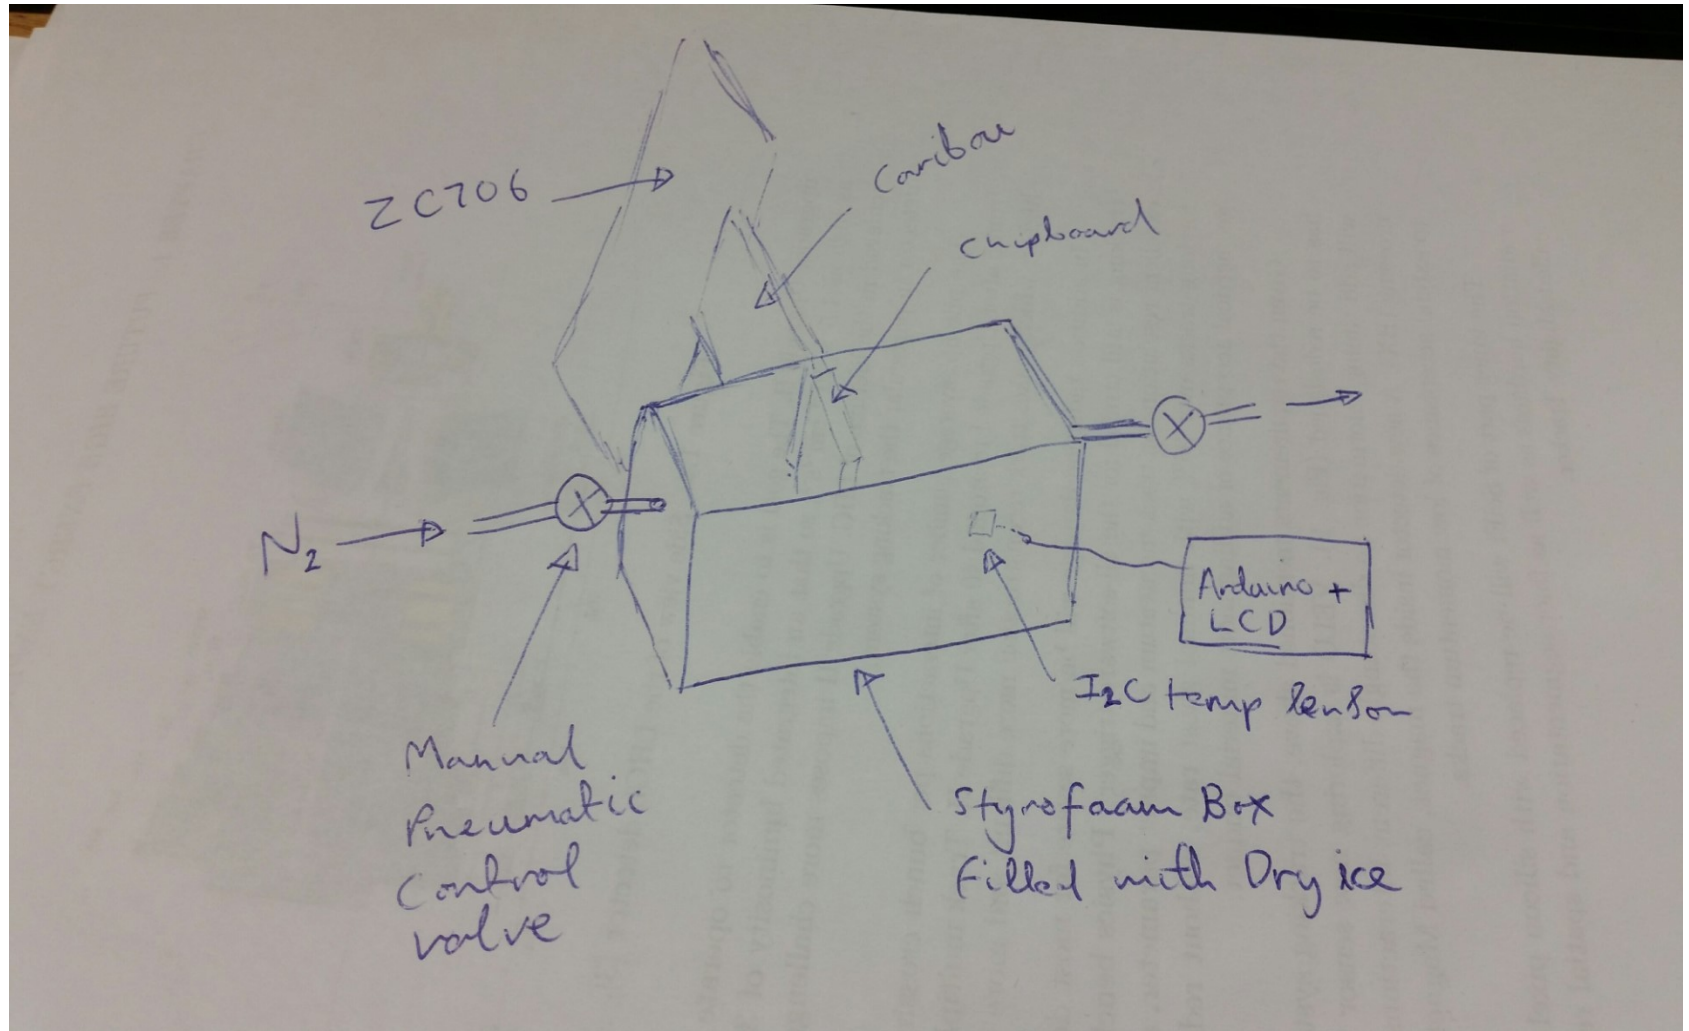 ZC706
Caribou
Chipboard
N2
Arduino +
LCD
I2C temp sensor
Manual
Pneumatic
Control
valve
Styrofaam Box
filled with Dry ice